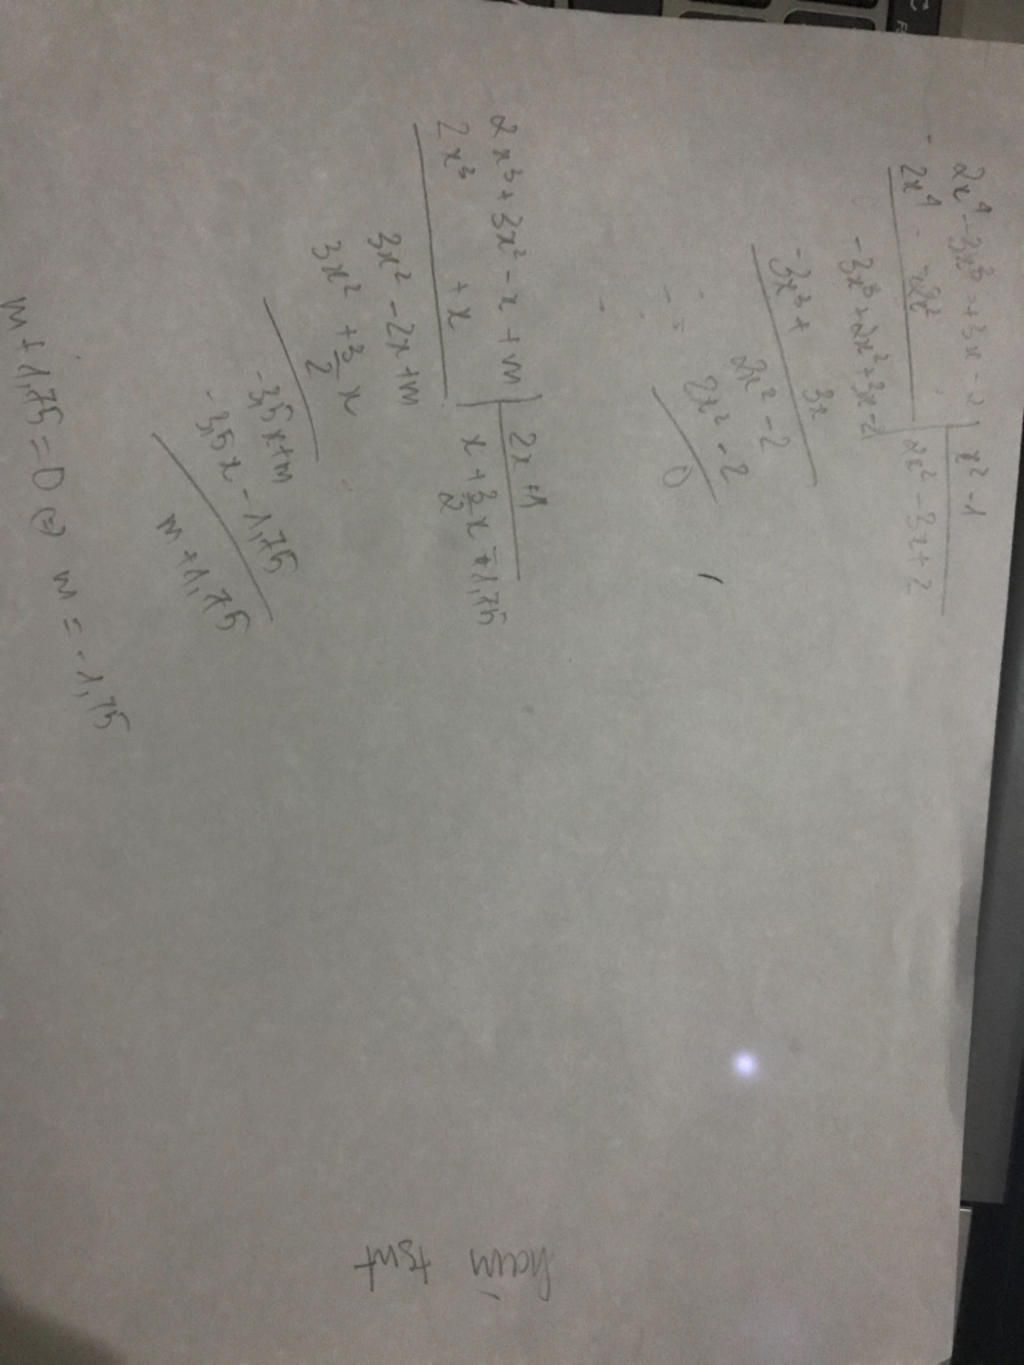 2x⁴ - 3x³ + 3x - 2 | x² - 1
- 2x⁴ - 2x² | 2x² - 3x + 2
-3x³ + 2x² + 3x - 2
-3x³ + 3x
2x² - 2
2x² - 2
0
2x³ + 3x² - x + m | 2x + 1
2x³ + x | x + 3/2 x - 1,75
3x² - 2x + m
3x² + 3/2 x
-3,5x + m
-3,5x - 1,75
m + 1,75
m + 1,75 = 0 ⇔ m = -1,75